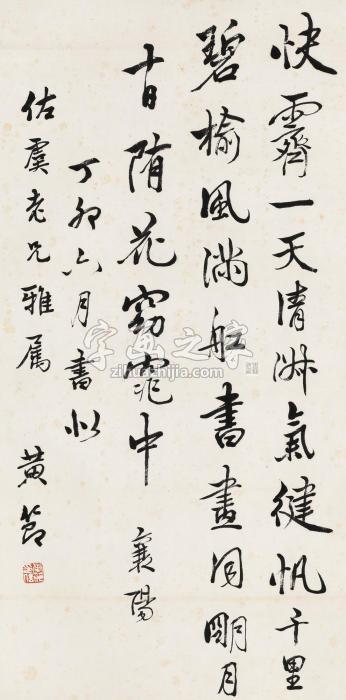 快霽一天清淑氣健帆千里
碧榆風滿船書畫同朙月
十日隋花窈窕中 襄陽
丁卯六月書似
佑虞老兄雅属 黄節
字画之家
zihuazhijia.com